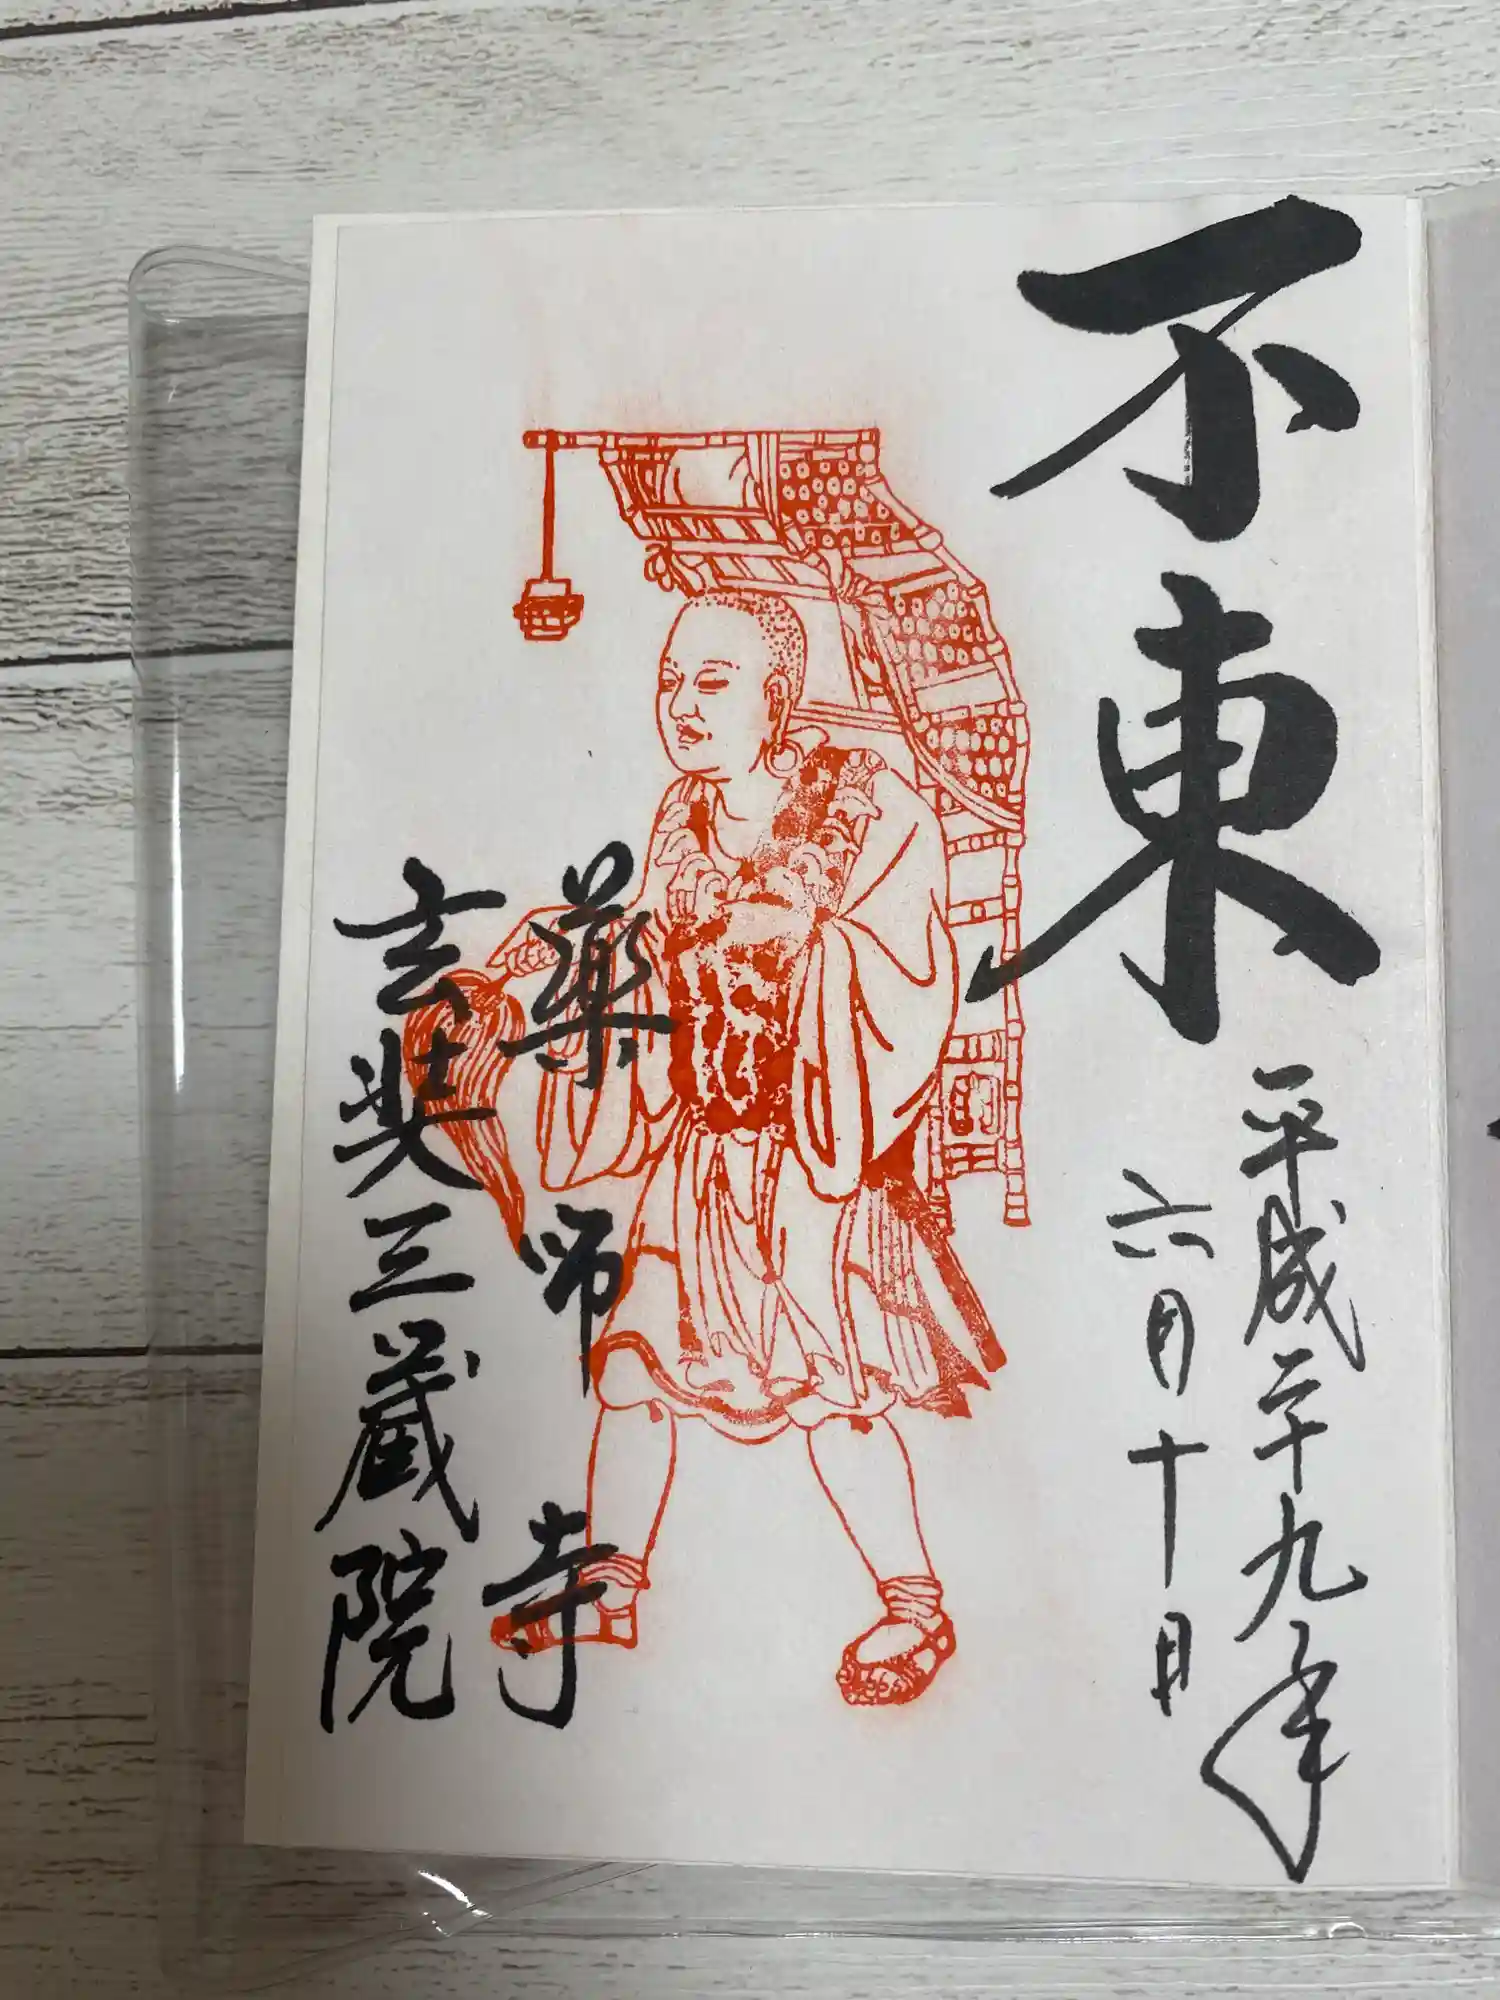 不東
平成二十九年
六月十日
薬師寺
玄奘三蔵院